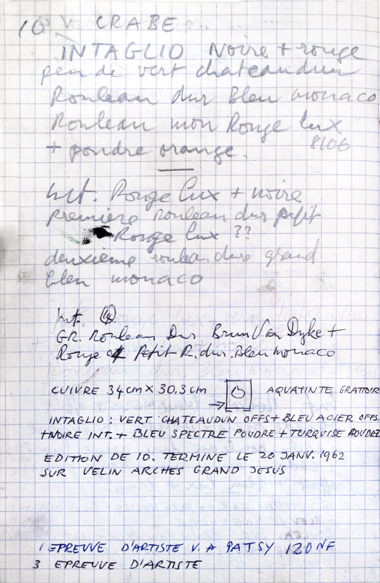 16 V. CRABE
INTAGLIO Noire + rouge
peu de vert chateaudun
Rouleau dur Bleu monaco
Rouleau mou Rouge lux
+ poudre orange. 8106
Int. Rouge lux + noire
premiere rouleau dur petit
Rouge lux ??
deuxieme rouleau dur grand
bleu monaco
Int. 4
GR. Rouleau Dur Brun Van Dyke +
Rouge Petit R. dur. Bleu monaco
CUIVRE 34cm X 30.3cm AQUATINTE GRATTOIR
INTAGLIO : VERT CHATEAUDUN OFFS + BLEU ACIER OFFS.
+ NOIRE INT. + BLEU SPECTRE POUDRE + TURQUISE POUDRE
EDITION DE 10. TERMINE LE 20 JANV. 1962
SUR VELIN ARCHES GRAND JESUS
1 EPREUVE D'ARTISTE V. A PATSY 120 NF
3 EPREUVE D'ARTISTE